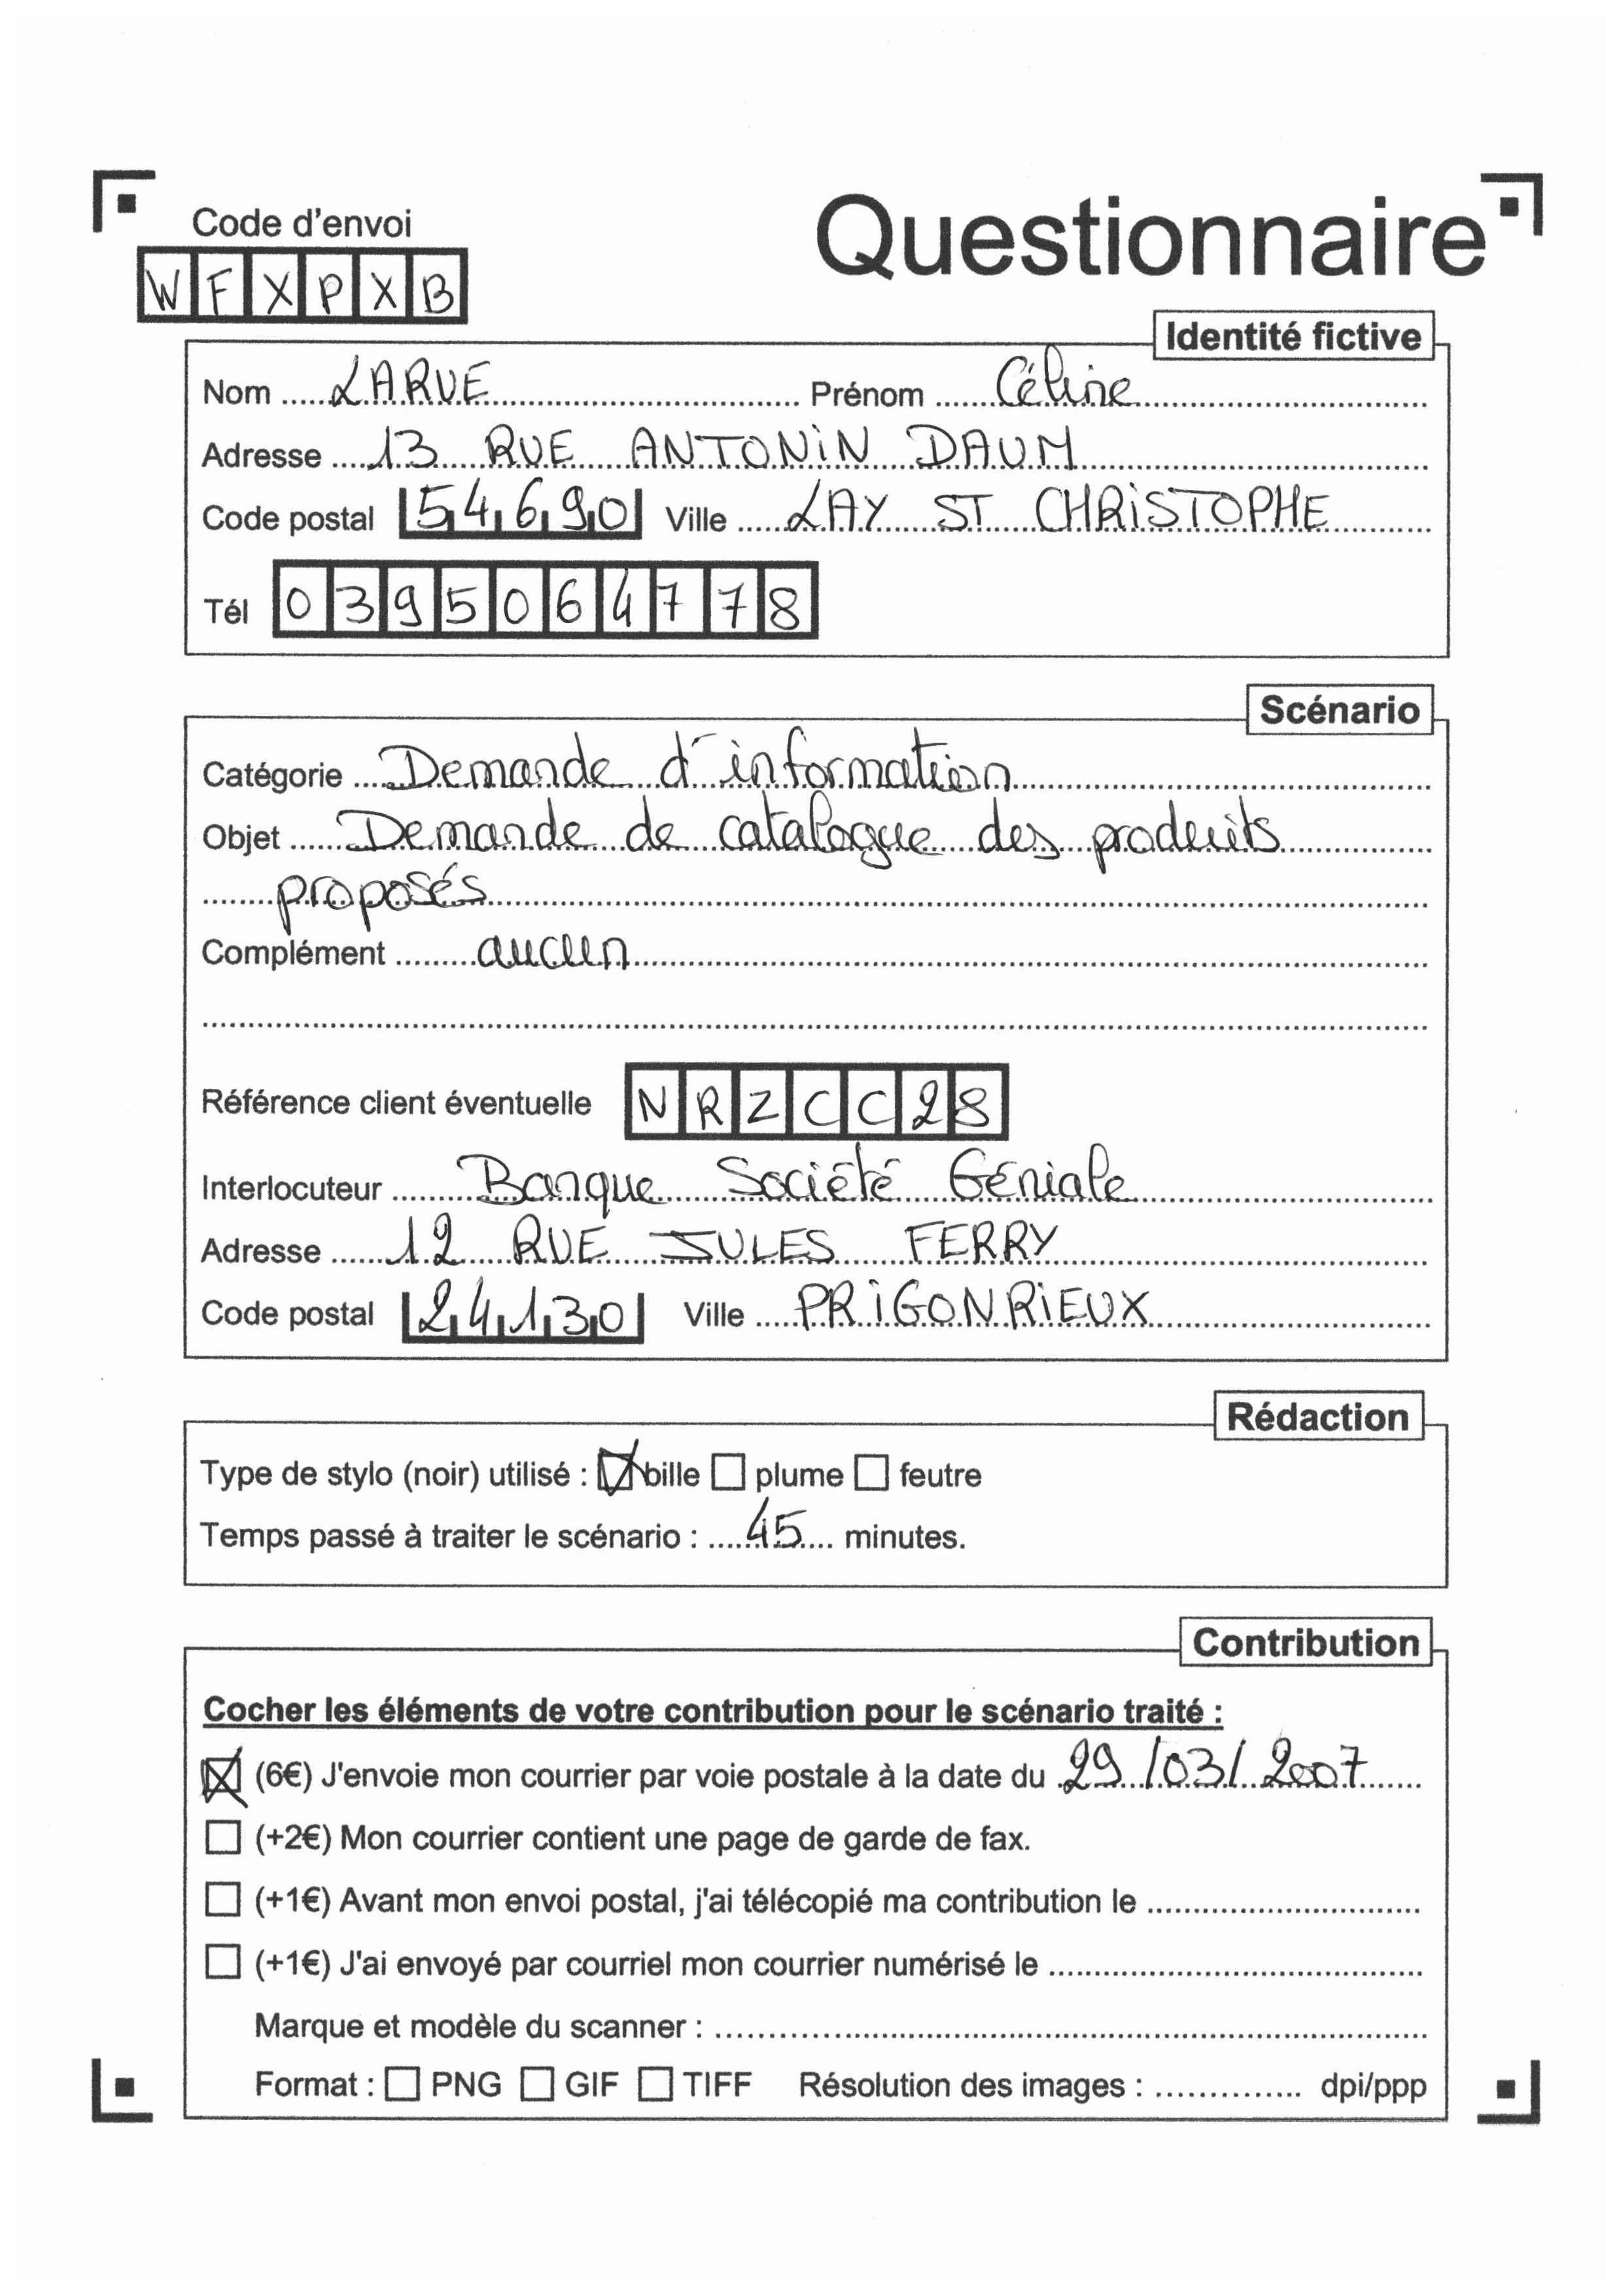 Questionnaire
Code d'envoi
WFXPXB
Identité fictive
Nom ..... LARUE ..... Prénom ..... Céline
Adresse ..... 13 RUE ANTONIN DAUM
Code postal 54690 Ville ..... LAY ST CHRISTOPHE
Tél 0395064778
Scénario
Catégorie ..... Demande d'information
Objet ..... Demande de catalogue des produits
proposés
Complément ..... aucun
Référence client éventuelle NRZCC28
Interlocuteur ..... Banque Société Géniale
Adresse ..... 12 RUE JULES FERRY
Code postal 24130 Ville ..... PRIGONRIEUX
Rédaction
Type de stylo (noir) utilisé : ☒ bille ☐ plume ☐ feutre
Temps passé à traiter le scénario : ..... 45 ..... minutes.
Contribution
Cocher les éléments de votre contribution pour le scénario traité :
☒ (6€) J'envoie mon courrier par voie postale à la date du 29/03/2007
☐ (+2€) Mon courrier contient une page de garde de fax.
☐ (+1€) Avant mon envoi postal, j'ai télécopié ma contribution le .....
☐ (+1€) J'ai envoyé par courriel mon courrier numérisé le .....
Marque et modèle du scanner : .....
Format : ☐ PNG ☐ GIF ☐ TIFF Résolution des images : ..... dpi/ppp